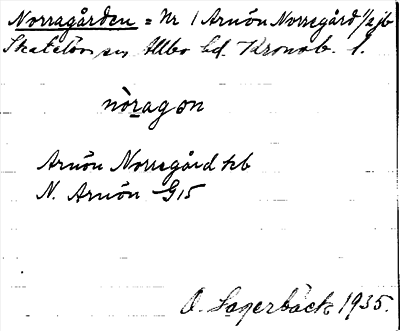 Norragården = Nr 1 Arnön Norregård 1/2 jb
Skatelövs sn Allbo hd. Kronob. l.
nòragon
Arnön Norregård hb
N. Arnön G15
O. Lagerbäck 1935.